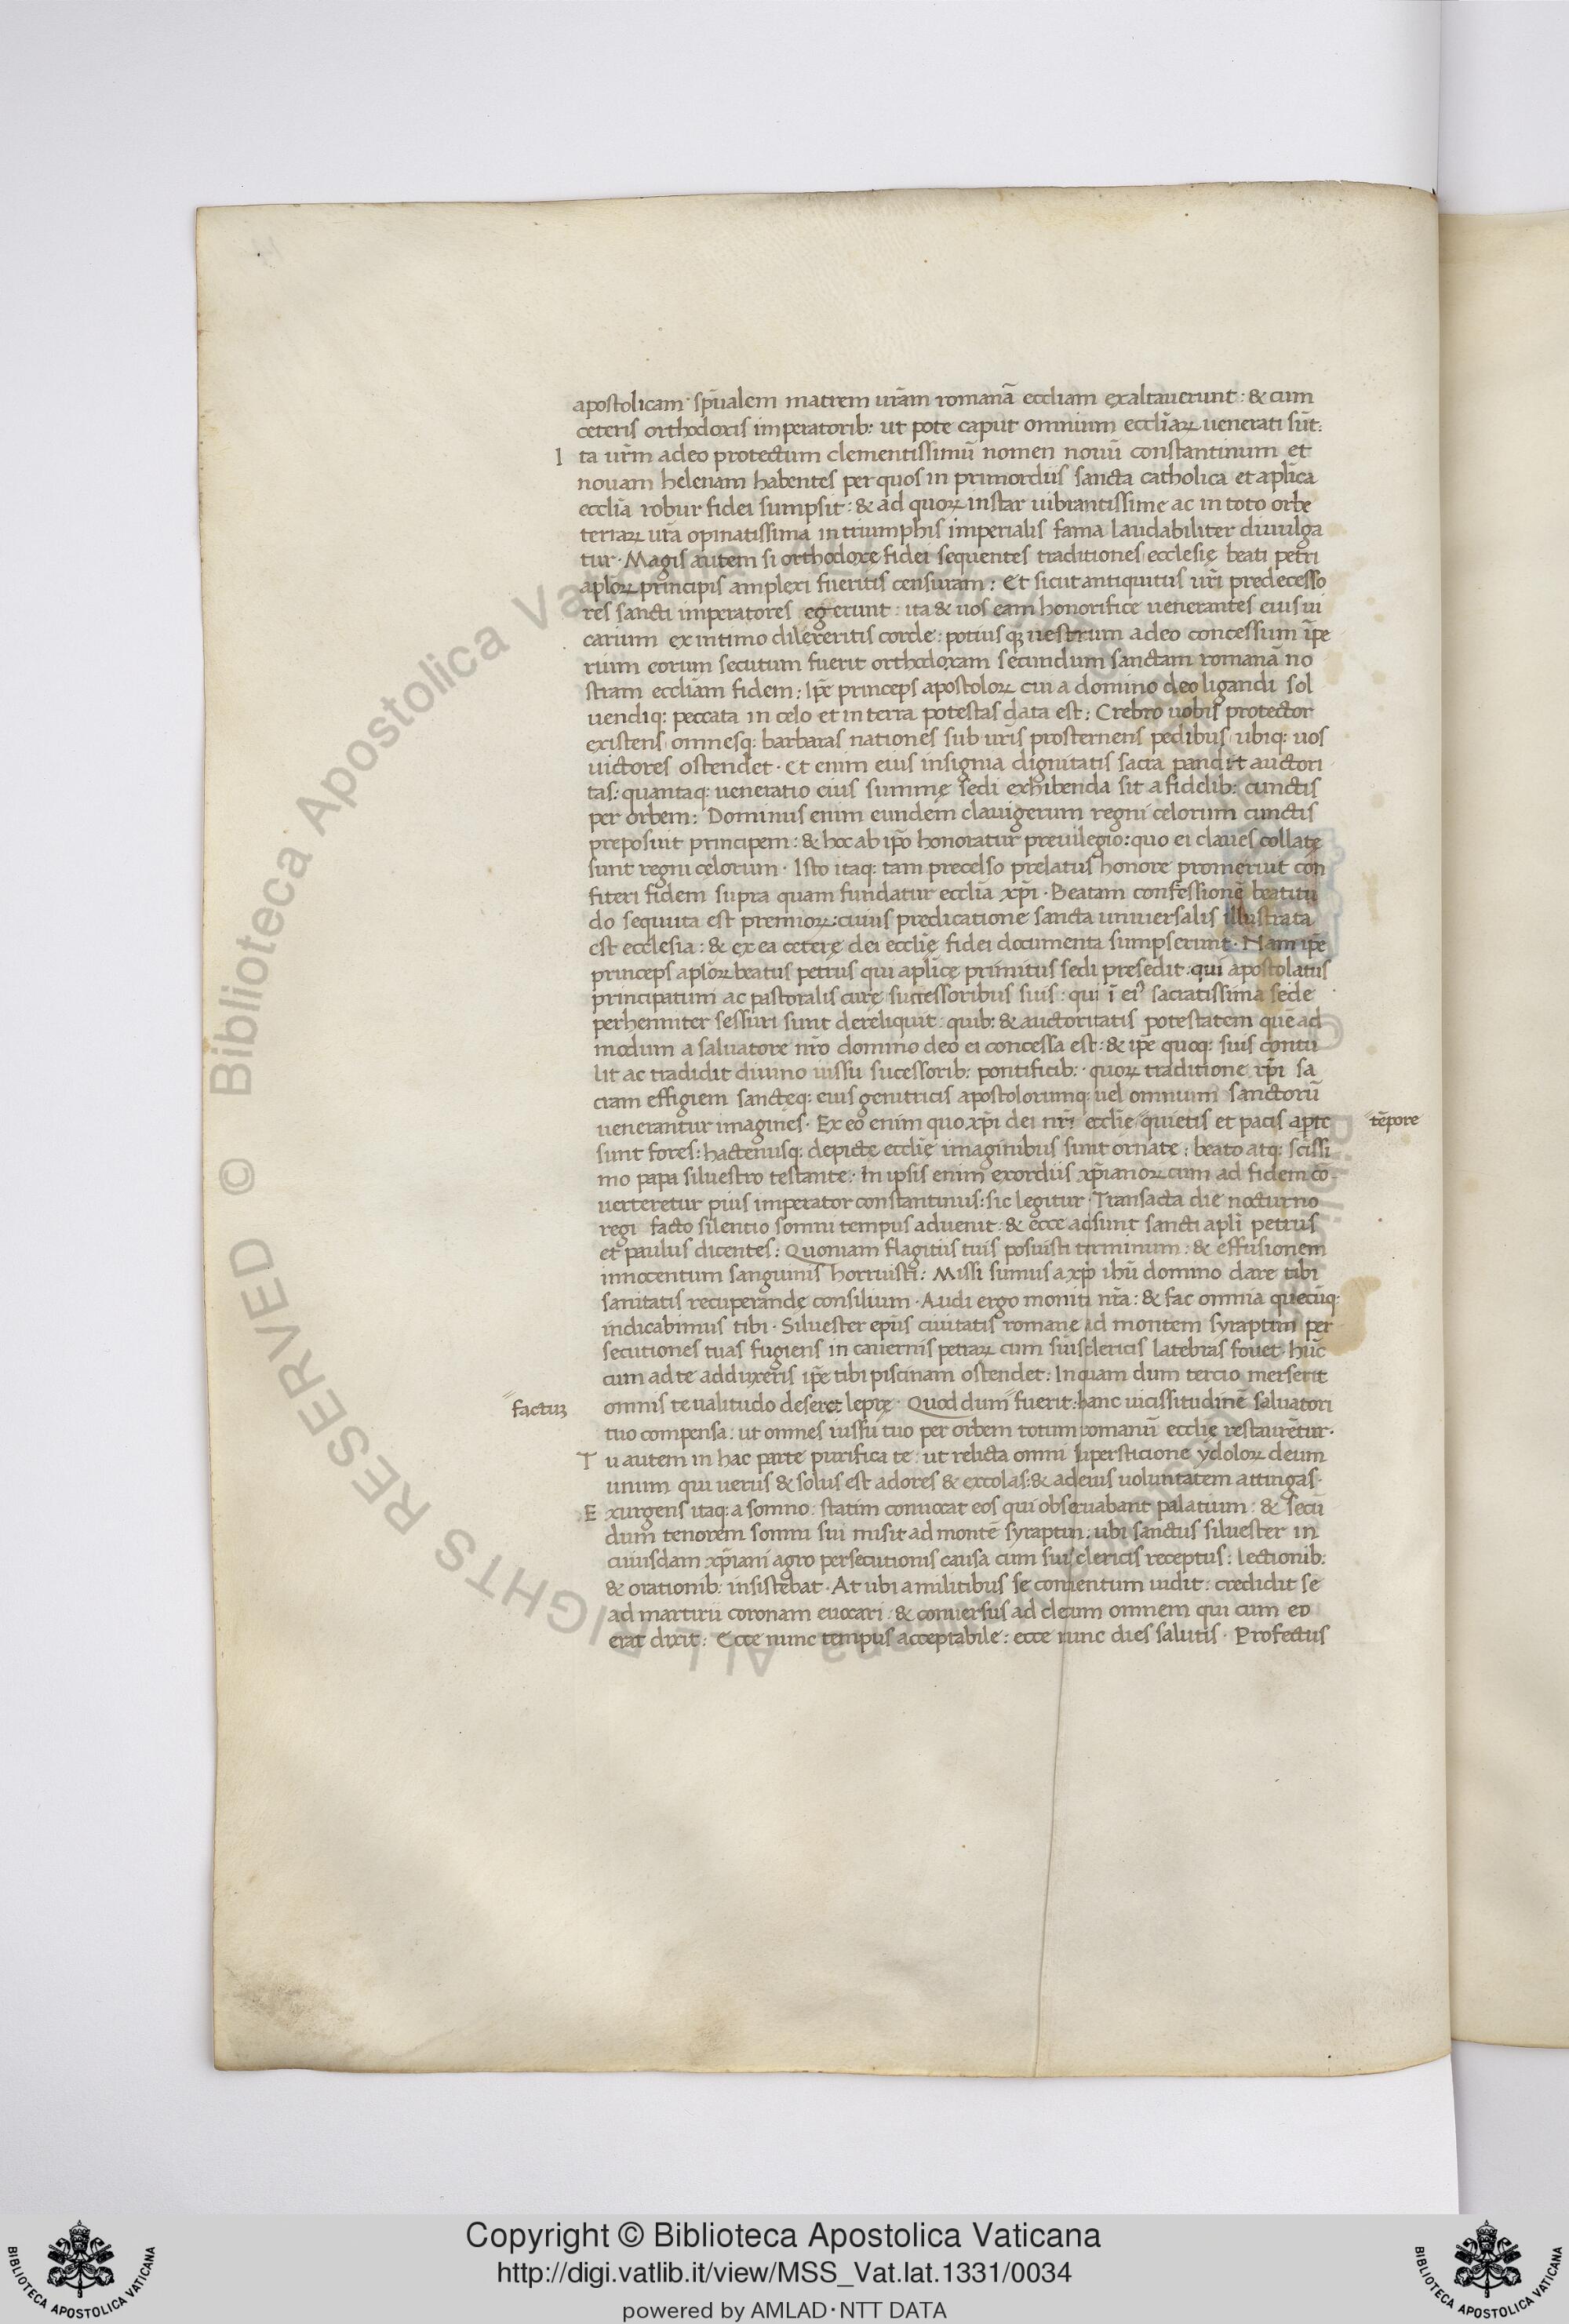 apostolicam· sp̄ualem matrem ur̄am romanā eccliam exaltauerunt: & cum
ceteris orthodoxis imperatorib: ut pote caput omnium eccl̄iaꝝ uenerati sūt:
Ita ur̄m adeo protectum clementissimū nomen nouū constantinum et
nouam helenam habentes per quos in primordiis sancta catholica et apl̄ica
eccliā robur fidei sumpsit: & ad quoꝝ instar uibrantissime ac in toto orbe
terraꝝ ur̄a opinatissima in triumphis imperialis fama laudabiliter diuulga
tur· Magis autem si orthodoxę fidei sequentes traditiones ecclesię beati petri
apl̄oꝝ principis amplexi fueritis censuram: Et sicut antiquitus ur̄i predecesso
res sancti imperatores egerunt: ita & uos eam honorifice uenerantes eius ui
carium ex intimo dilexeritis corde: potiusqꝫ uestrum adeo concessum īpe
rium eorum secutum fuerit orthodoxam secundum sanctam romanā no
stram eccliam fidem: Ip̄e princeps apostoloꝝ cui a domino deo ligandi sol
uendiq: peccata in celo et in terra potestas data est: Crebro uobis protector
existens omnesq: barbaras nationes sub ur̄is prosternens pedibus ubiq: uos
uictores ostendet· Et enim eius insignia dignitatis sacra pandit auctori
tas: quantaq: ueneratio eius summę sedi exhibenda sit a fidelib: cunctis
per orbem: Dominus enim eundem clauigerum regni celorum cunctis
preposuit principem: & hoc ab ip̄o honoratur preuilegio: quo ei claues collatę
sunt regni celorum· Isto itaq: tam precelso prelatus honore promeruit con
fiteri fidem supra quam fundatur eccliā xp̄i· Beatam confessionē beatitu
do sequuta est premioꝝ: cuius predicatione sancta uniuersalis illustrata
est ecclesia: & ex ea ceterę dei ecclię fidei documenta sumpserunt· Nam ip̄e
princeps apl̄oꝝ beatus petrus qui apl̄icę primitus sedi presedit: qui apostolatus
principatum ac pastoralis curę successoribus suis: qui ī eiꝰ sacratissima sede
perhenniter sessuri sunt dereliquit: quib: & auctoritatis potestatem quē ad
modum a saluatore nr̄o domino deo ei concessa est: & ip̄e quoq: suis contu
lit ac tradidit diuino iussu sucessorib: pontificib:· quoꝝ traditione xp̄i sa
cram effigiem sanctęq: eius genitricis apostolorumq: uel omnium sanctorū
uenerantur imagines· Ex eo enim quo xp̄i dei nr̄i ecclię "quietis et pacis aptę "tēpore
sunt fores: hactenusq: depictę ecclię imaginibus sunt ornate: beato atq: sc̄issi
mo papa siluestro testante: In ipsis enim exordiis xp̄ianoꝝ cum ad fidem cō-
uerteretur pius imperator constantinus: sic legitur· Transacta die nocturno
regi facto silentio somni tempus aduenit: & ecce adsunt sancti apl̄i petrus
et paulus dicentes: Quoniam flagitiis tuis posuisti terminum: & effusionem
innocentum sanguinis horruisti: Missi sumus a xp̄o ihū domino dare tibi
sanitatis recuperandę consilium· Audi ergo monita nr̄a: & fac omnia quecūq:
indicabimus tibi· Siluester ep̄us ciuitatis romane ad montem syraptim per
secutiones tuas fugiens in cauernis petraꝝ cum suis clericis latebras fouet· hūc
cum ad te adduxeris ip̄e tibi piscinam ostendet: In quam dum tercio merserit
"factuꝫ omnis te ualitudo deseret leprę· Quod dum "fuerit: hanc uicissitudinē saluatori
tuo compensa: ut omnes iussu tuo per orbem totum romanū ecclię restaurētur·
Tu autem in hac parte purifica te: ut relicta omni supersticione ydoloꝝ deum
unum qui uerus & solus est adores & excolas: & ad eius uoluntatem attingas·
Exurgens itaq: a somno: statim conuocat eos qui obseruabant palatium: & secū
dum tenorem somni sui misit ad montē syraptin: ubi sanctus siluester in
cuiusdam xp̄iani agro persecutionis causa cum suis clericis receptus: lectionib:
& orationib: insistebat· At ubi a militibus se conuentum uidit: credidit se
ad martirii coronam euocari: & conuersus ad clerum omnem qui cum eo
erat dixit: Ecce nunc tempus acceptabile: ecce nunc dies salutis· Profectus
© Biblioteca Apostolica Vaticana ALL RIGHTS RESERVED
Copyright © Biblioteca Apostolica Vaticana
http://digi.vatlib.it/view/MSS_Vat.lat.1331/0034
powered by AMLAD·NTT DATA
BIBLIOTECA APOSTOLICA VATICANA
BIBLIOTECA APOSTOLICA VATICANA